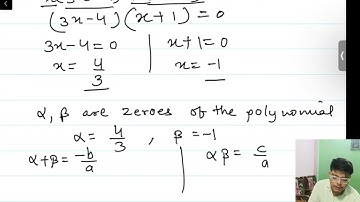 (3x-4)(x+1)=0
3x-4=0 | x+1=0
x= 4/3 | x=-1
α, β are zeroes of the polynomial
α= 4/3 , β=-1
α+β= -b/a | αβ= c/a